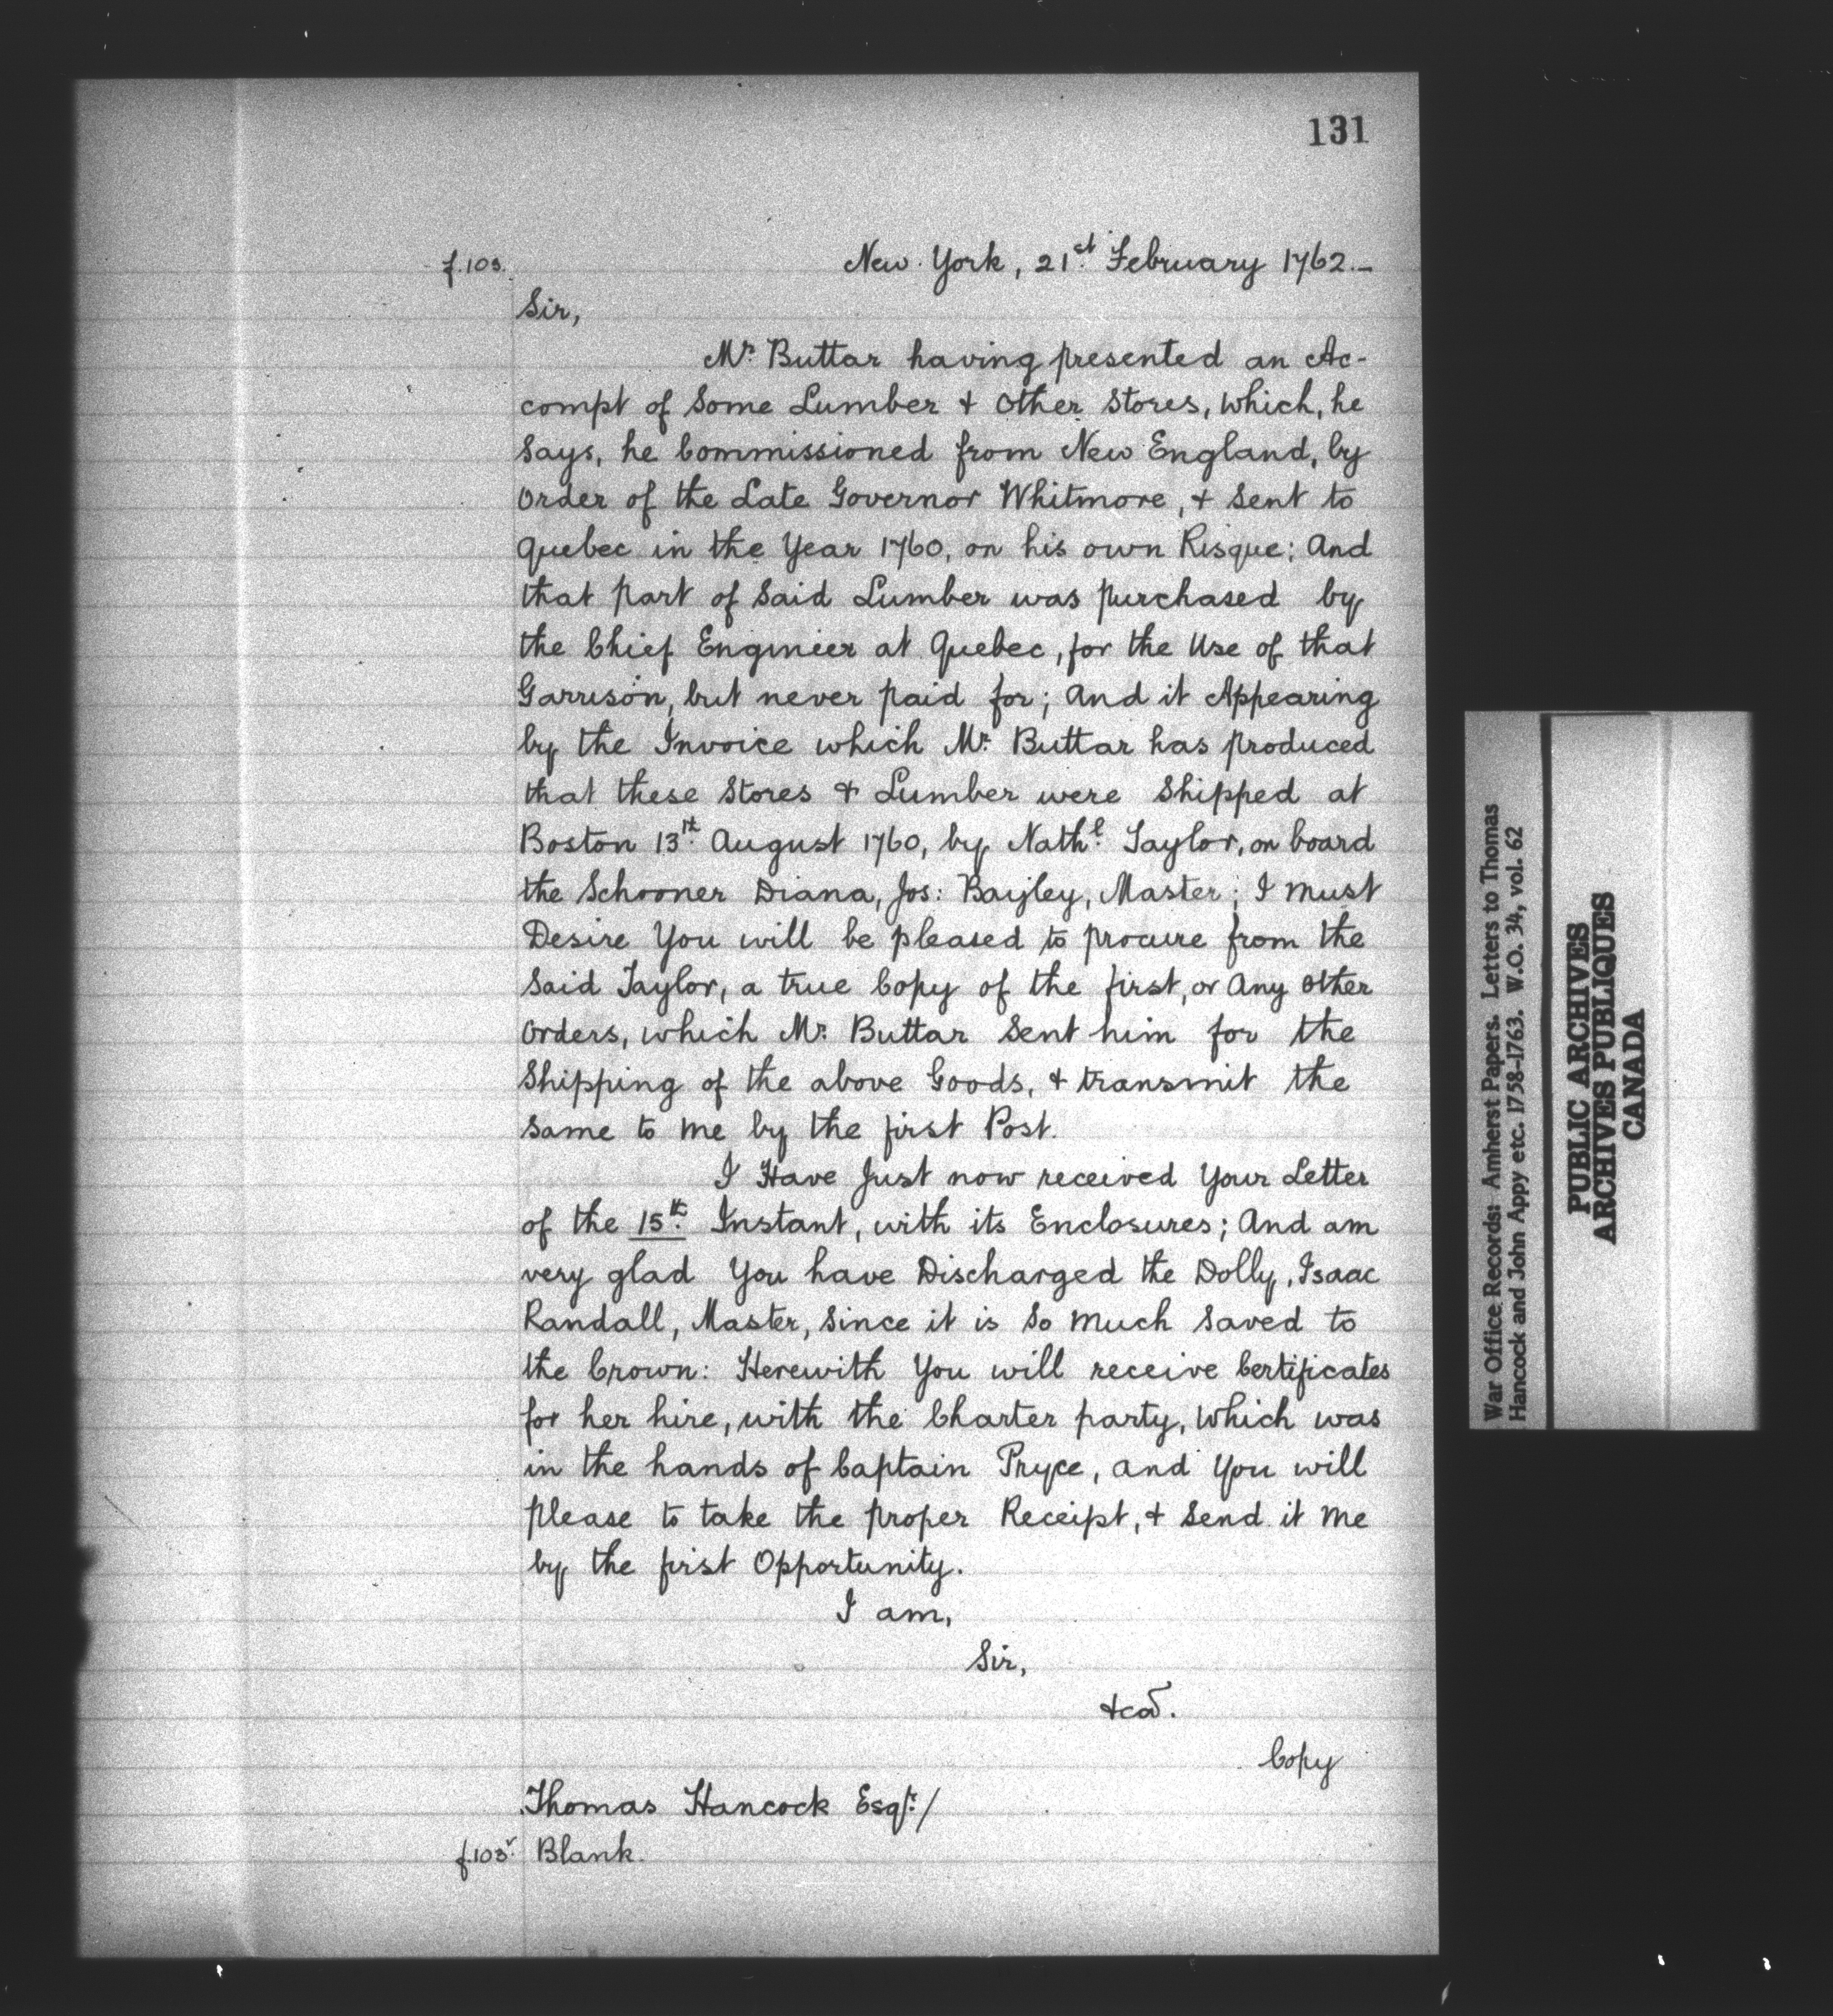 131
f.103. New York, 21st February 1762.-
Sir,
Mr. Buttar having presented an Ac-
compt of Some Lumber & Other Stores, Which, he
Says, he Commissioned from New England, by
Order of the Late Governor Whitmore, & Sent to
Quebec in the Year 1760, on his own Risque; And
that part of Said Lumber was purchased by
the Chief Engineer at Quebec, for the Use of that
Garrison, but never paid for; And it Appearing
by the Invoice which Mr. Buttar has produced
that these Stores & Lumber were Shipped at
Boston 13th August 1760, by Nathl. Taylor, on board
the Schooner Diana, Jos: Bayley, Master; I must
Desire You will be pleased to procure from the
Said Taylor, a true Copy of the first, or Any Other
Orders, which Mr. Buttar Sent him for the
Shipping of the above Goods, & transmit the
Same to me by the first Post.
I Have Just now received Your Letter
of the 15th. Instant, with its Enclosures; And am
very glad You have Discharged the Dolly, Isaac
Randall, Master, Since it is So much Saved to
the Crown: Herewith You will receive Certificates
for her hire, with the Charter party, Which was
in the hands of Captain Pryce, and You will
please to take the proper Receipt, & Send it me
by the first Opportunity.
I am,
Sir,
&ca.
Copy
Thomas Hancock Esqr./
f.103v. Blank.
War Office Records: Amherst Papers. Letters to Thomas
Hancock and John Appy etc. 1758-1763. W.O. 34, vol. 62
PUBLIC ARCHIVES
ARCHIVES PUBLIQUES
CANADA